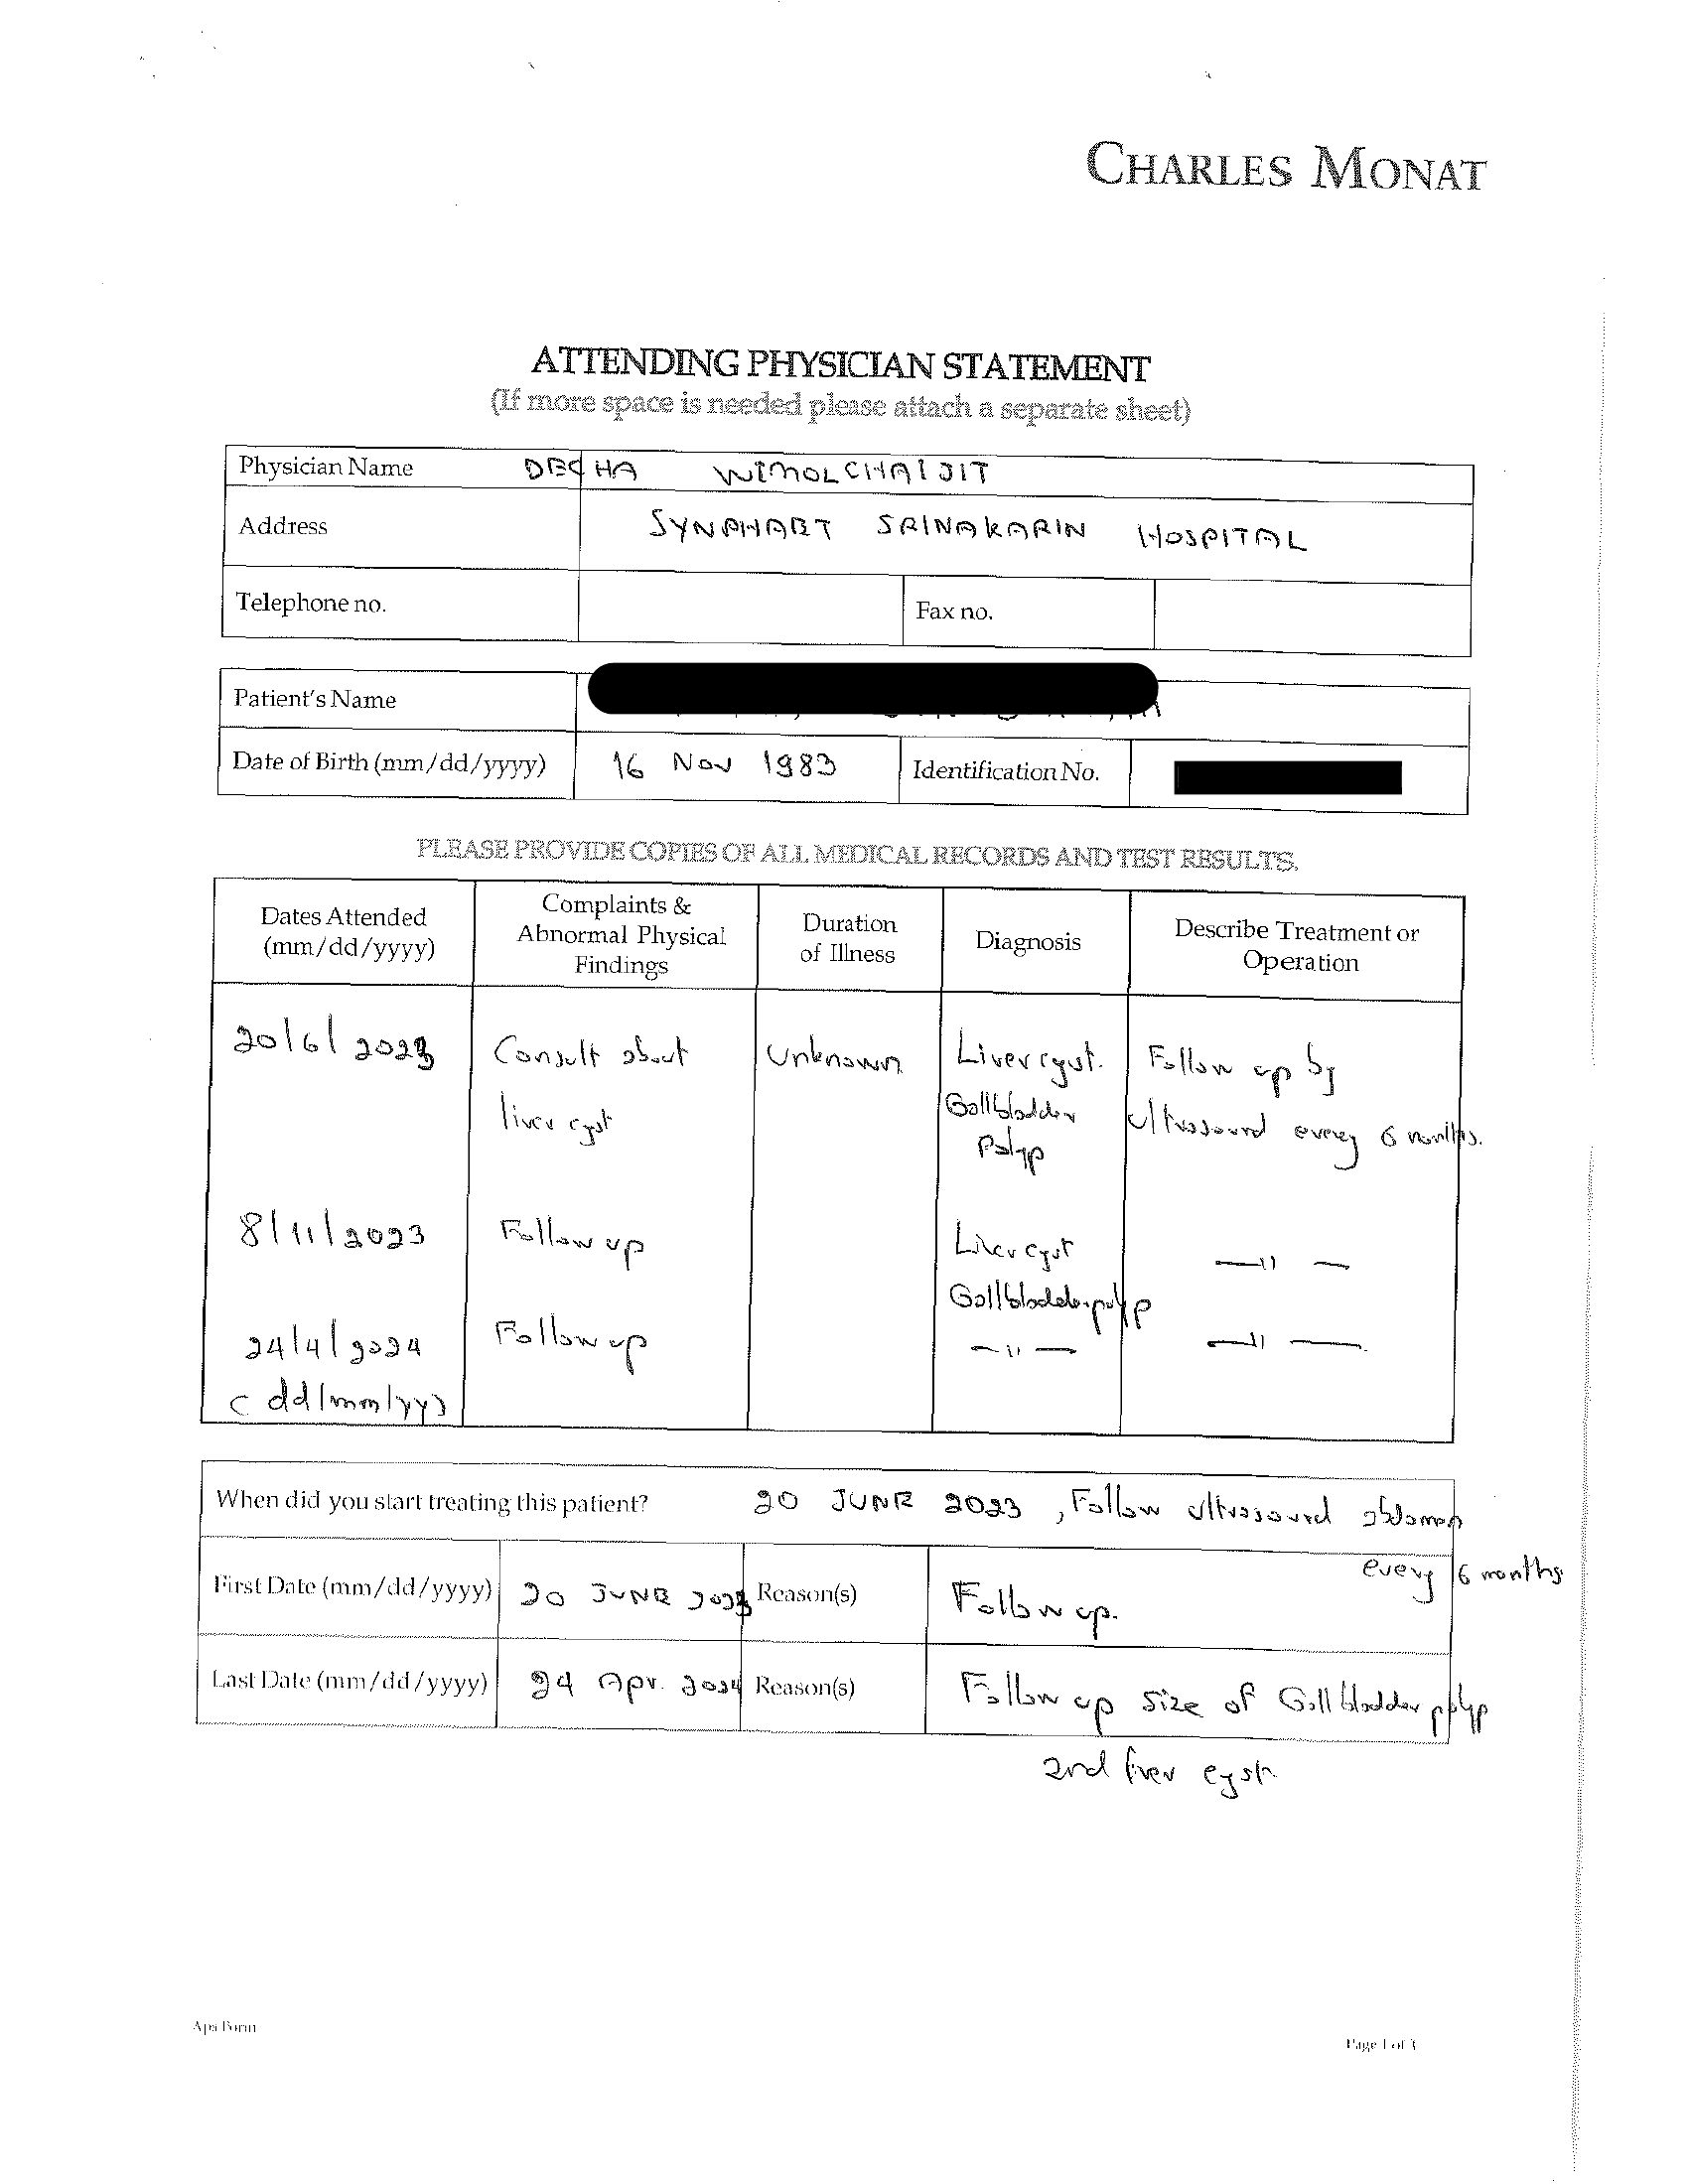 CHARLES MONAT
ATTENDING PHYSICIAN STATEMENT
(If more space is needed please attach a separate sheet)
Physician Name DECHA WIMOLCHAIJIT
Address SYNPHAET SRINAKARIN HOSPITAL
Telephone no. Fax no.
Patient's Name
Date of Birth (mm/dd/yyyy) 16 Nov 1983 Identification No.
PLEASE PROVIDE COPIES OF ALL MEDICAL RECORDS AND TEST RESULTS.
Dates Attended (mm/dd/yyyy) Complaints & Abnormal Physical Findings Duration of Illness Diagnosis Describe Treatment or Operation
20/6/2023 Consult about Unknown Liver cyst. Follow up by
liver cyst Gallbladder ultrasound every 6 months.
Polyp
8/11/2023 Follow up Liver cyst —〃—
Gallbladder polyp
24/4/2024 Follow up —〃— —〃—
(dd/mm/yy)
When did you start treating this patient? 20 JUNE 2023, Follow ultrasound abdomen
every 6 months
First Date (mm/dd/yyyy) 20 JUNE 2023 Reason(s) Follow up.
Last Date (mm/dd/yyyy) 24 Apr. 2024 Reason(s) Follow up size of Gallbladder polyp
and liver cyst
Aps Form
Page 1 of 3